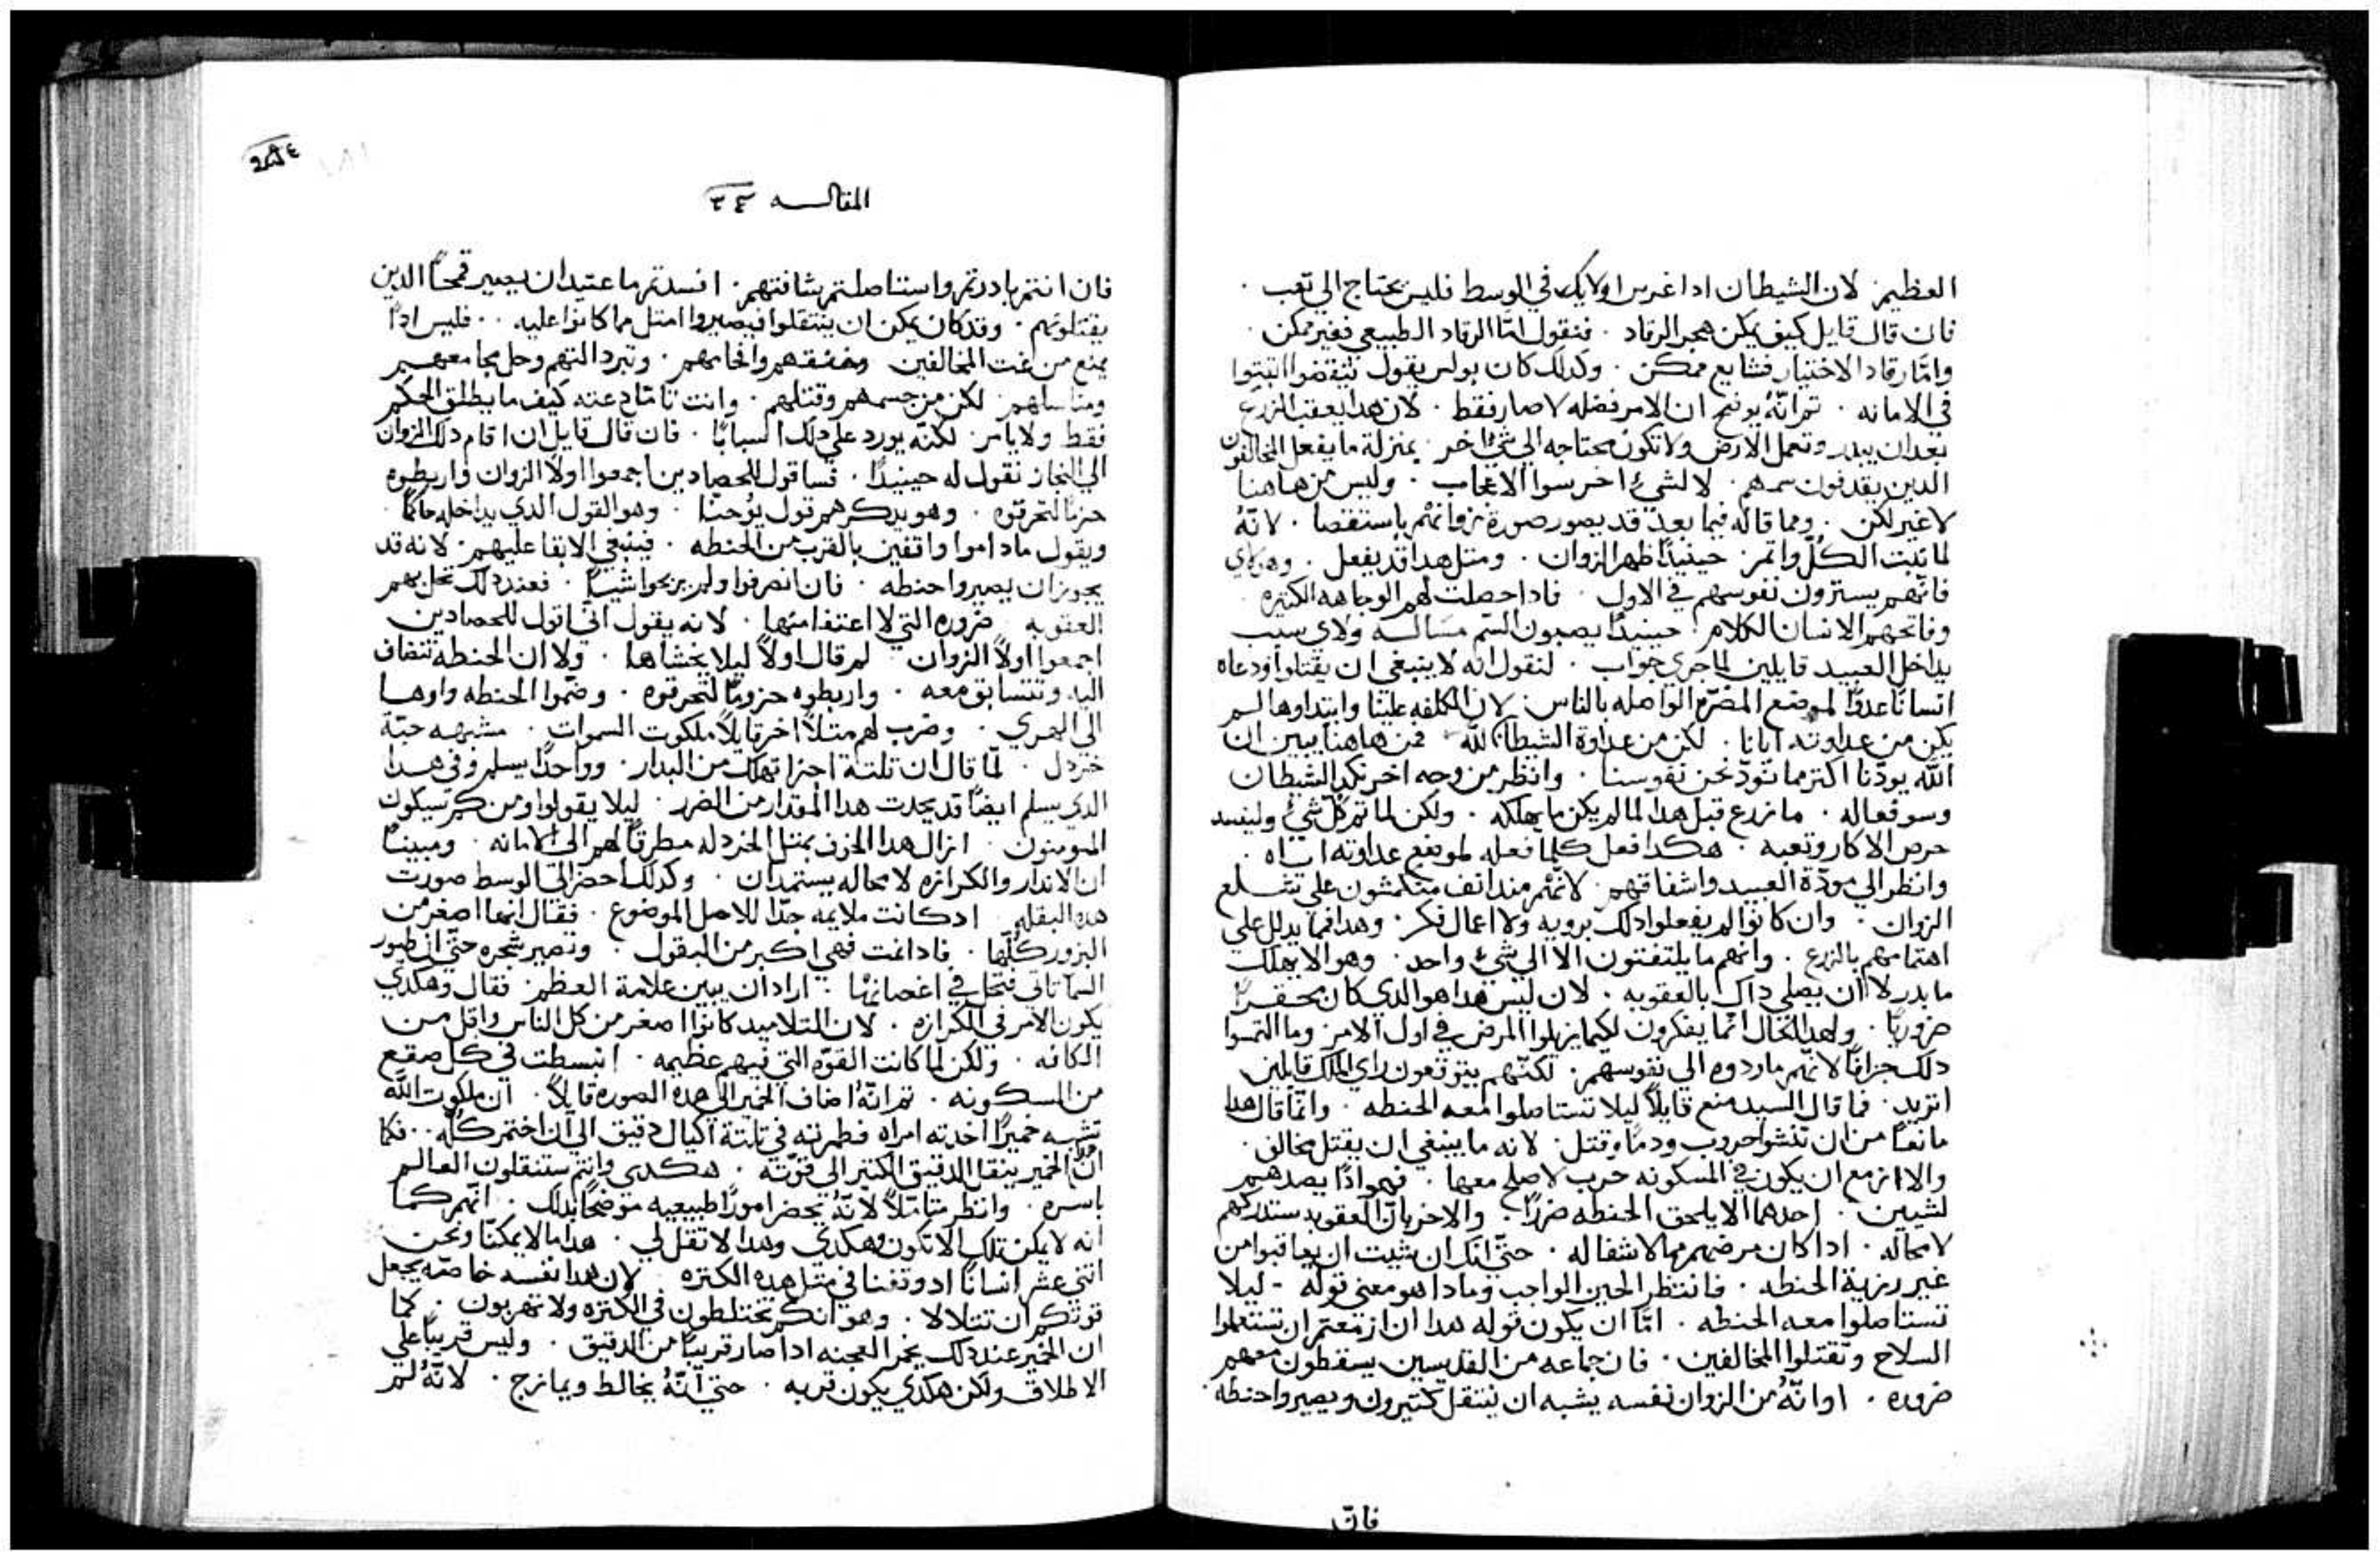 العظيم. لان الشيطان ادا غرس اولايك في الوسط فليس يحتاج الي تعب .
فان قال قايل كيف يمكن هجر الرقاد . فنقول امّا الرقاد الطبيعي فغير ممكن .
وامّا رقاد الاختيار فشايع ممكن . وكدلك كان بولس يقول تيقضوا اتبتوا
في الامانه . تم انّهُ يوضح ان الامر فضله لا صار فقط . لان هدا يعقب الزرع
بعد ان يبدر وتعمل الارض ولا تكون محتاجه الي شيٍ اخر . بمنزلة ما يفعل المخالفون
الدين يقدفون سمهم . لا لشيءٍ اخر سوا الاعجاب . وليس من هاهنا
لا غير لكن . ومما قاله فيما بعد قد يصور صورة زوانهم باستقصا . لانّهُ
لما تبت الكُلّ واتمر . حينيدًا ظهر الزوان . ومتل هدا قد يفعل . وهولاي
فانّهم يسترون نفوسهم في الاول . فادا حصلت لهم الوجاهه الكتيره .
وفاتحهم الانسان الكلام . حينيدًا يصبون السّم مسالـه ولاي سبب
يداخل العبيد قايلين لما جري جواب . لنقول انه لا ينبغي ان يقتلوا ودعاه
انسانًا عدوًّا لموضع المضرّه الواصله بالناس . لان الكلفه علينا وابتداوها لـم
يكن من عداوته ايانا . لكن من عداوة الشيطان لله فمن هاهنا يبين ان
اللّه يودّنا اكتر مما نودّ نحن نفوسنا . وانظر من وجه اخر نكد الشيطان
وسو فعاله . ما زرع قبل هدا لما لم يكن ما يهلكه . ولكن لما تم كل شيٍ وليفسد
حرص الاكار وتعبه . هكدا فعل كلما فعله لموضع عداوته اياه .
وانظر الي مودّة العبيد واشفاقهم . لانّهم مند انف منكمشون علي تقلع
الزوان . وان كانوا لم يفعلوا دلك برويه ولا اعمال فكر . وهدا فما يدلل علي
اهتمامهم بالزرع . وانهم ما يلتفتون الا الي شيءٍ واحد . وهو الا يهلك
ما بدر لا ان يصلي داك بالعقوبه . لان ليس هدا هو الدي كان محـفـزًا
ضروريًا . ولهدا الحال انما يفكرون لكيما يزيلوا المرض في اول الامر . وما التمسوا
دلك جزافًا لانّهم ما ردوه الي نفوسهم . لكنّهم يتوقعون راي الملك قايلين
اتريد . فما قال السيد منع قايلاً ليلا تستاصلوا معه الحنطه . وانّما قال هدا
مانعًا من ان تنشوا حروب ودماً وقتل . لانه ما ينبغي ان يقتل مخالف .
والا ازمع ان يكون في المسكونه حرب لا صلح معها . فهو ادًا يصدهم
لشيين . احدهما الا يلحق الحنطه ضررًا . والاخر بانّ العقوبه ستدركهم
لا محاله . ادا كان مرضهم مما لا شفا له . حتّي انك ان شيت ان يعاقبوا من
غير رزية الحنطه . فانتظر الحين الواجب وما دا هو معني قوله - ليلا
تستاصلوا معه الحنطه . امّا ان يكون قوله هدا ان ازمعتم ان تستعملوا
السلاح وتقتلوا المخالفين . فان جماعه من القديسين يسقطون معهم
ضروره . او انّهُ من الزوان نفسه يشبه ان ينتقل كتيرون ويصيروا حنطه .
فان
المقالـــه ٣٤
فان انتم بادرتم واستاصلتم شافتهم . افسدتم ما عتيد ان يصير قمحًا الدين
يقتلونهم . وقد كان يمكن ان ينتقلوا فيصيروا امتل مما كانوا عليه . . فليس ادًا
يمنع من عنت المخالفين وخنقهم وافحامهم . وتبرد التهم وحل مجامعهم
لكن من حسمهم وقتلهم . وانت تامّل دعته كيف ما يطلق الحكم
فقط ولا يامر . لكنّه يورد علي دلك اسبابًا . فان قال قايل ان اقام دلك الزوان
الي النجاز نقول له حينيدًا . فساقول للحصادين اجمعوا اولًا الزوان واربطوه
حزمًا لتحرقوه . وهو يدكرهم قول يوُحنا . وهو القول الدي يداخله حاكمًا .
ويقول ما داموا واقفين بالقرب من الحنطه . فينبغي الابقا عليهم . لانه قد
يجوز ان يصيروا حنطه . فان انصرفوا ولم يربحوا شيًا . فعند دلك تحل بهم
العقوبه ضروره التي لا اعتفا منها . لانه يقول انّي اقول للحصادين
اجمعوا اولاً الزوان . لم قال اولاً ليلا يخشاها . ولا ان الحنطه تنضاف
اليه وتتسابق معه . واربطوه حزومًا لتحرقوه . وضمّوا الحنطه واوها
الي الهري . وضرب لهم متلًا اخر قايلاً ملكوت السموات . مشبهه حبّة
خردل . لمّا قال ان تلتة اجزا تهلك من البدار . وواحدًا يسلم وفي هـدا
الدي يسلم ايضًا قد يحدت هدا المقدار من الضرر . ليلا يقولوا ومن كم سيكون
المومنون . ازال هدا الحزن بمتل الخردله مطرقًا لهم الي الامانه . ومبينًا
ان الاندار والكرازه لا محاله يستمدان . وكدلك احضر الي الوسط صورت
هده البقله ادكانت ملايمه جدّا للاصل الموضوع . فقال انها اصغر من
البزور كلّها . فادا نمت فهي اكبر من البقول . وتصير شجره حتّي ان طيور
السما تاتي فتحل في اغصانها . اراد ان يبين علامة العظم . فقال وهكدي
يكون الامر في الكرازه . لان التلاميد كانوا اصغر من كل الناس واقل مـن
الكافه . ولكن لما كانت القوّه التي فيهم عظيمه . انبسطت في كـل صقع
من المسكونه . تم انّهُ اضاف الخمير الي هده الصوره قايلًا . ان ملكوت اللّه
تشبه خميرًا اخدته امراه فطمرته في تلتة اكيال دقيق الي ان اختمر كلّه . . فكما
انّ الخمير ينقل الدقيق الكتير الي قوّته . هكـدي وانتم ستنقلون العالـم
باسره . وانظر متامّلًا لانّهُ يحضر امورًا طبيعيه موضحًا بدلك . انّهم كـما
انه لا يمكن تلك الا تكون وهكدي وهدا لا تقل لي . هدا ما لا يمكنّا ونحن
اتني عشر انسانًا اد وقفنا في متل هده الكتره لان هدا نفسه خاصّه يجعل
قوتكم ان تتلالا . وهو انكم تختلطون في الكتره ولا تهربون . كما
ان الخمير عند دلك يخمر العجنه ادا صار قريبًا من الدقيق . وليس قريبًا علي
الاطلاق ولكن هكدي يكون قربه . حتي انّهُ يخالط ويمازج . لانّهُ لـم